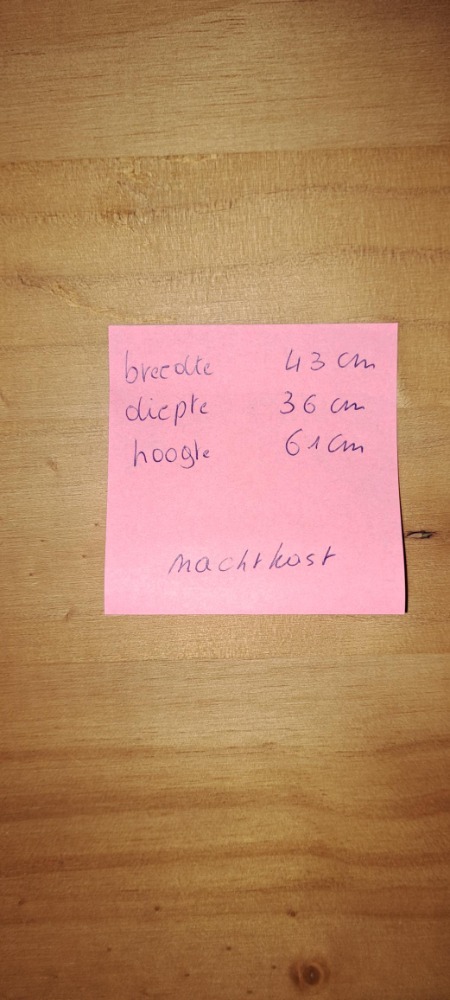 breedte 43 cm
diepte 36 cm
hoogte 61 cm
nachtkast